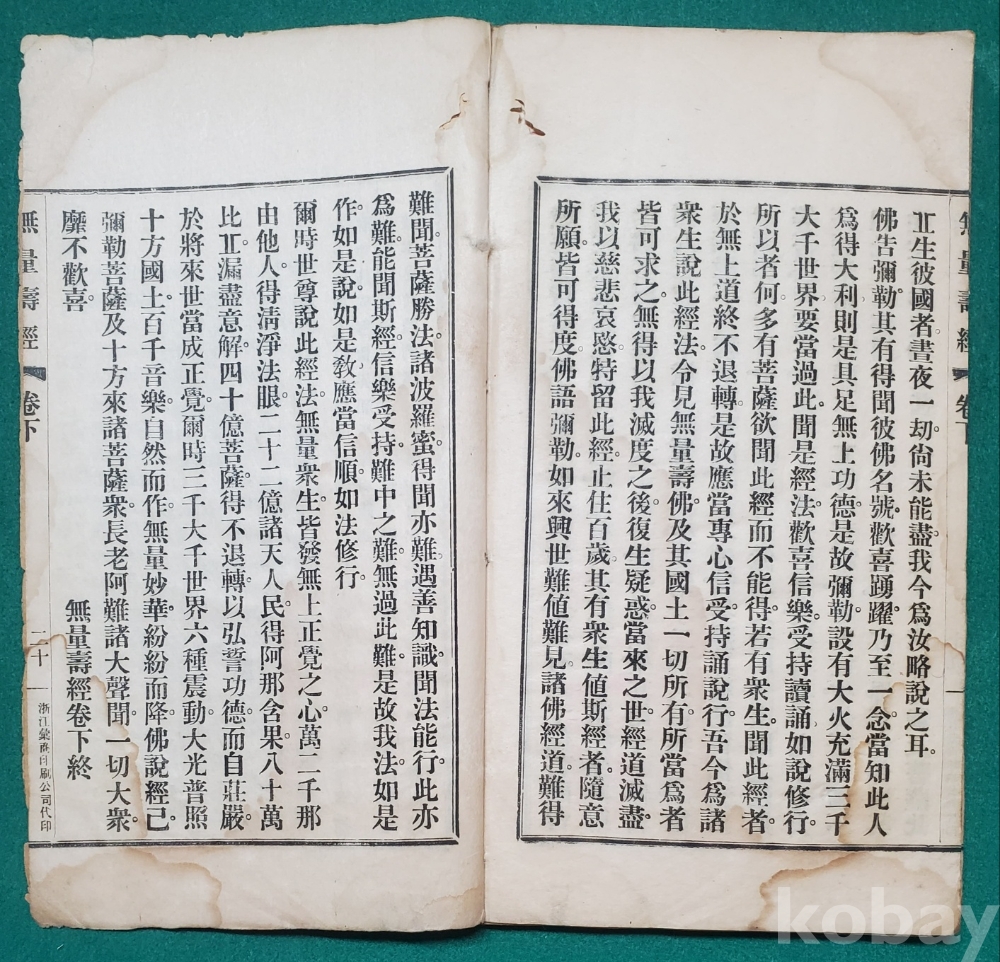 無量壽經 卷下
丘生彼國者晝夜一劫。尙未能盡我今爲汝略說之耳。
佛告彌勒。其有得聞彼佛名號。歡喜踴躍乃至一念。當知此人
爲得大利則是具足無上功德是故彌勒。設有大火充滿三千
大千世界要當過此。聞是經法歡喜信樂。受持讀誦如說修行。
所以者何。多有菩薩欲聞此經而不能得。若有衆生。聞此經者。
於無上道終不退轉。是故應當專心信受。持誦說行。吾今爲諸
衆生說此經法。令見無量壽佛。及其國土一切所有。所當爲者
皆可求之。無得以我滅度之後。復生疑惑。當來之世。經道滅盡。
我以慈悲哀愍特留此經。止住百歲。其有衆生値斯經者。隨意
所願。皆可得度。佛語彌勒。如來興世難値難見。諸佛經道難得
難聞。菩薩勝法。諸波羅蜜。得聞亦難。遇善知識。聞法能行。此亦
爲難。能聞斯經。信樂受持。難中之難。無過此難。是故我法如是
作。如是說。如是敎。應當信順。如法修行。
爾時世尊說此經法。無量衆生。皆發無上正覺之心。萬二千那
由他人。得淸淨法眼。二十二億諸天人民。得阿那含果。八十萬
比丘。漏盡意解。四十億菩薩。得不退轉。以弘誓功德。而自莊嚴。
於將來世。當成正覺。爾時三千大千世界。六種震動。大光普照
十方國土。百千音樂。自然而作。無量妙華。紛紛而降。佛說經已。
彌勒菩薩。及十方來諸菩薩衆。長老阿難。諸大聲聞。一切大衆。
靡不歡喜
無量壽經卷下終
無量壽經 卷下 二十一 浙江彙商印刷公司代印
kobay